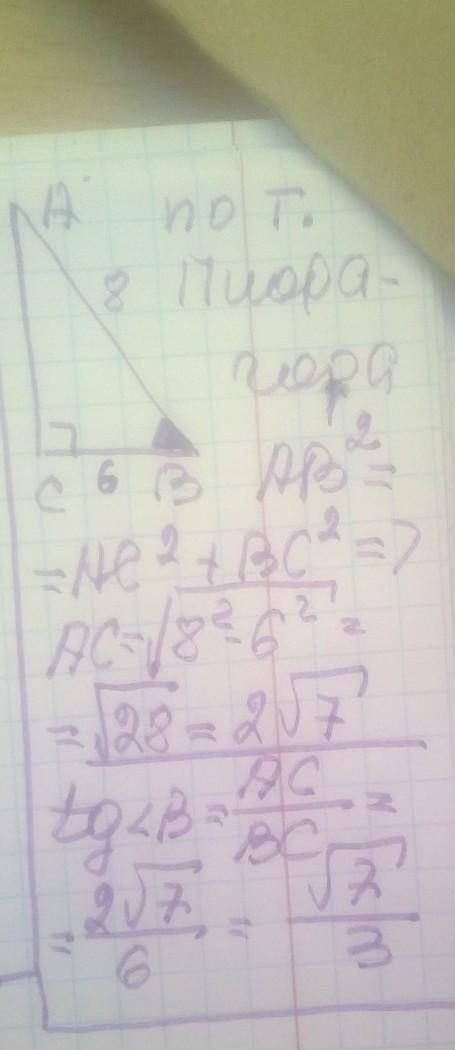 A по т.
8 Пифа-
гора
C 6 B AB² =
= AC² + BC² =>
AC = √8² - 6² =
= √28 = 2√7
tg < B = AC/BC =
= 2√7/6 = √7/3